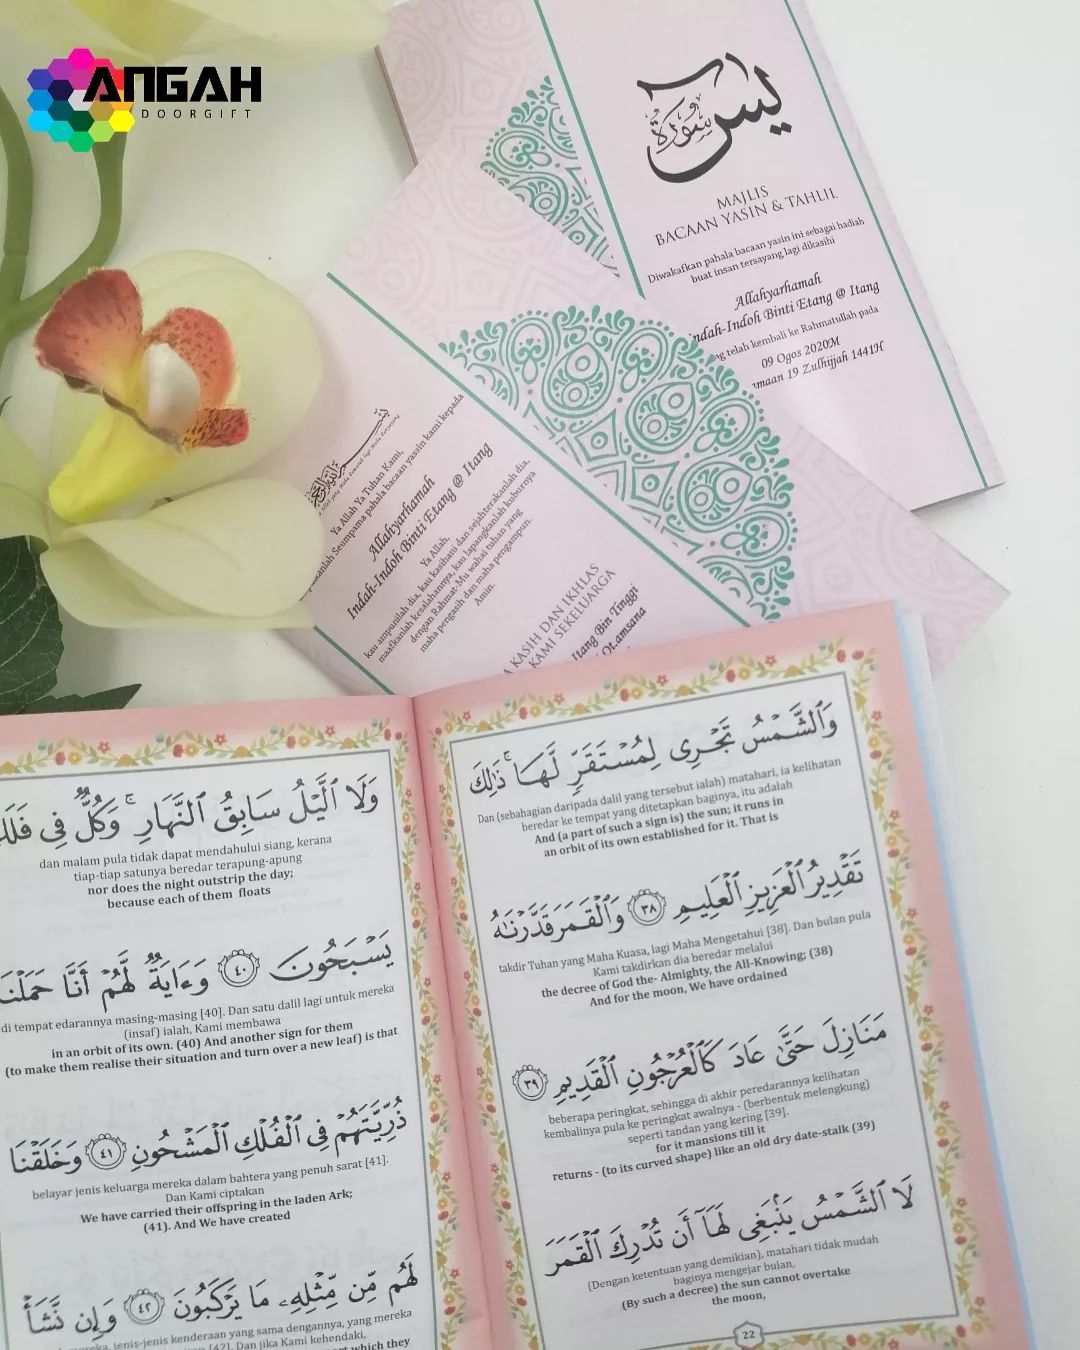 ANGAH
DOORGIFT
يس
سورة
MAJLIS
BACAAN YASIN & TAHLIL
Diwakafkan pahala bacaan yasin ini sebagai hadiah
buat insan tersayang lagi dikasihi
Allahyarhamah
Indah-Indoh Binti Etang @ Itang
telah kembali ke Rahmatullah pada
09 Ogos 2020M
19 Zulhijjah 1441H
Ya Allah Ya Tuhan Kami,
Seumpama pahala bacaan yassin kami kepada
Allahyarhamah
Indah-Indoh Binti Etang @ Itang
Ya Allah,
kau ampunilah dia, kau kasihani dan sejahterakanlah dia,
maafkanlah kesalahannya, kau lapangkanlah kuburnya
dengan Rahmat-Mu wahai tuhan yang
maha pengasih dan maha pengampun.
Amin.
KASIH DAN IKHLAS
KAMI SEKELUARGA
Itang Bin Tinggi
وَلَا ٱلَّيْلُ سَابِقُ ٱلنَّهَارِ ۚ وَكُلٌّ فِى
dan malam pula tidak dapat mendahului siang, kerana
tiap-tiap satunya beredar terapung-apung
nor does the night outstrip the day;
because each of them floats
يَسْبَحُونَ ٤٠ وَءَايَةٌ لَّهُمْ أَنَّا حَمَلْنَا
di tempat edarannya masing-masing [40]. Dan satu dalil lagi untuk mereka
(insaf) ialah, Kami membawa
in an orbit of its own. (40) And another sign for them
(to make them realise their situation and turn over a new leaf) is that
ذُرِّيَّتَهُمْ فِى ٱلْفُلْكِ ٱلْمَشْحُونِ ٤١ وَخَلَقْنَا
belayar jenis keluarga mereka dalam bahtera yang penuh sarat [41].
Dan Kami ciptakan
We have carried their offspring in the laden Ark;
(41). And We have created
لَهُم مِّن مِّثْلِهِۦ مَا يَرْكَبُونَ ٤٢ وَإِن نَّشَأْ
jenis-jenis kenderaan yang sama dengannya, yang mereka
[42]. Dan jika Kami kehendaki,
which they
وَٱلشَّمْسُ تَجْرِى لِمُسْتَقَرٍّ لَّهَا ۚ ذَٰلِكَ
Dan (sebahagian daripada dalil yang tersebut ialah) matahari, ia kelihatan
beredar ke tempat yang ditetapkan baginya, itu adalah
And (a part of such a sign is) the sun; it runs in
an orbit of its own established for it. That is
تَقْدِيرُ ٱلْعَزِيزِ ٱلْعَلِيمِ ٣٨ وَٱلْقَمَرَ قَدَّرْنَٰهُ
takdir Tuhan yang Maha Kuasa, lagi Maha Mengetahui [38]. Dan bulan pula
Kami takdirkan dia beredar melalui
the decree of God the- Almighty, the All-Knowing; (38)
And for the moon, We have ordained
مَنَازِلَ حَتَّىٰ عَادَ كَٱلْعُرْجُونِ ٱلْقَدِيمِ ٣٩
beberapa peringkat, sehingga di akhir peredarannya kelihatan
kembalinya pula ke peringkat awalnya - (berbentuk melengkung)
seperti tandan yang kering [39].
for it mansions till it
returns - (to its curved shape) like an old dry date-stalk (39)
لَا ٱلشَّمْسُ يَنۢبَغِى لَهَآ أَن تُدْرِكَ ٱلْقَمَرَ
(Dengan ketentuan yang demikian), matahari tidak mudah
baginya mengejar bulan,
(By such a decree) the sun cannot overtake
the moon,
22